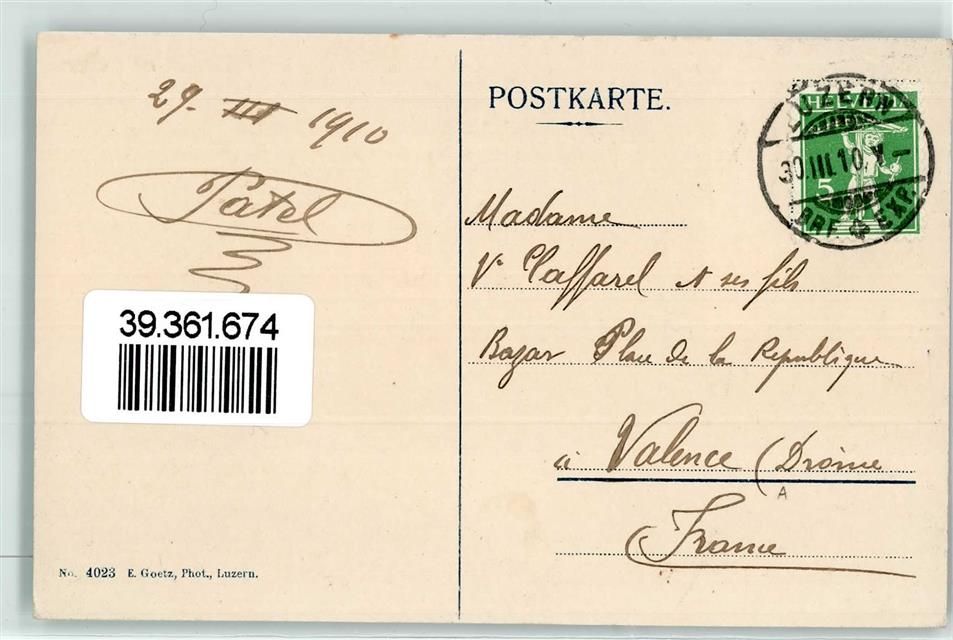 29. III 1910
Patel
39.361.674
No. 4023 E. Goetz, Phot., Luzern.
POSTKARTE.
HELVETIA
5
LUZERN
30.III.10.
BRF. EXP.
Madame
Ve Claffarel & ses fils
Bazar Place de la Republique
à Valence (Drôme
A
France